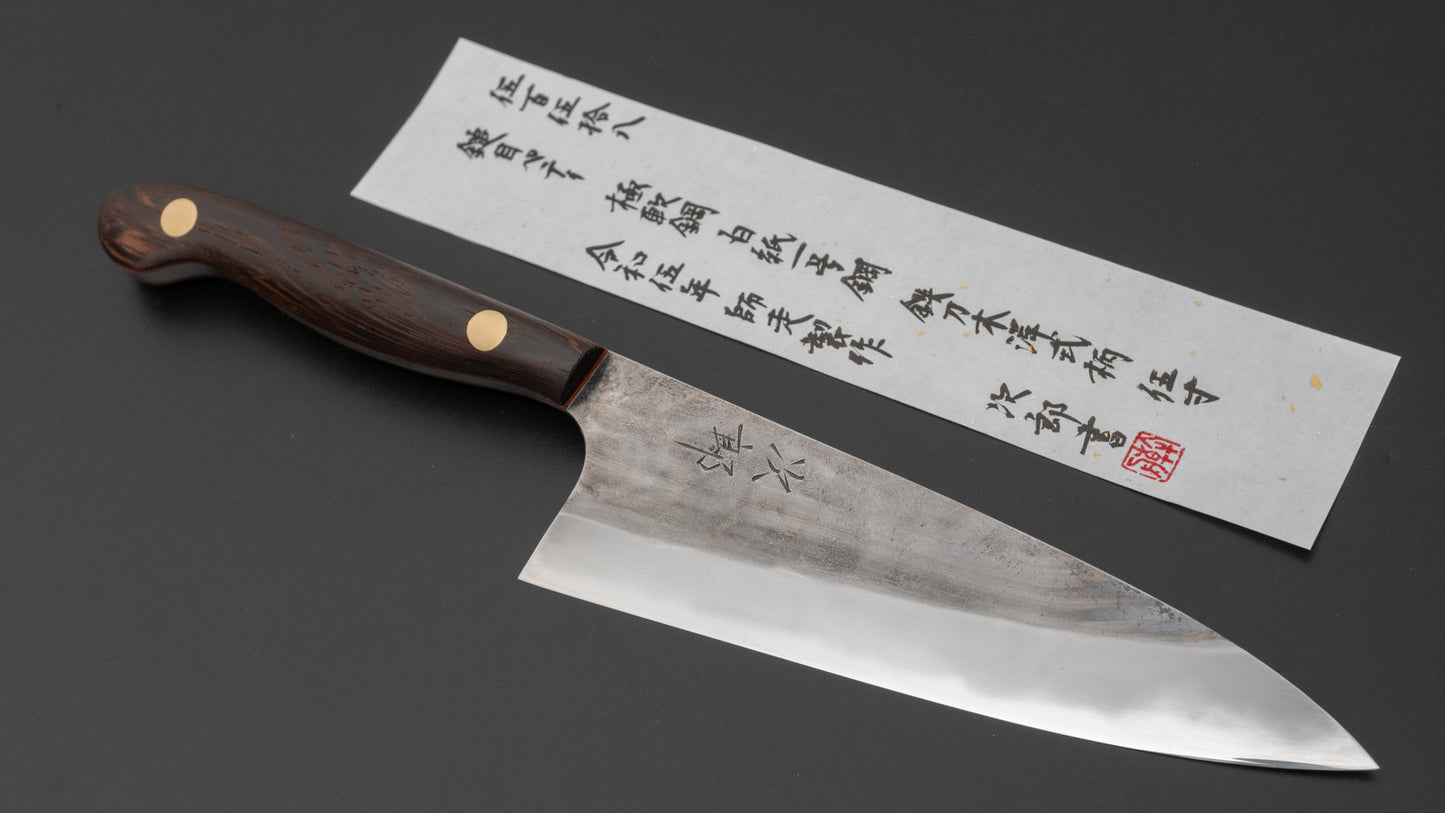 伍百伍拾八
鎚目ペティ
極軟鋼 白紙一号鋼 鐵刀木洋式柄 伍寸
令和伍年 師走製作
次郎書
次郎